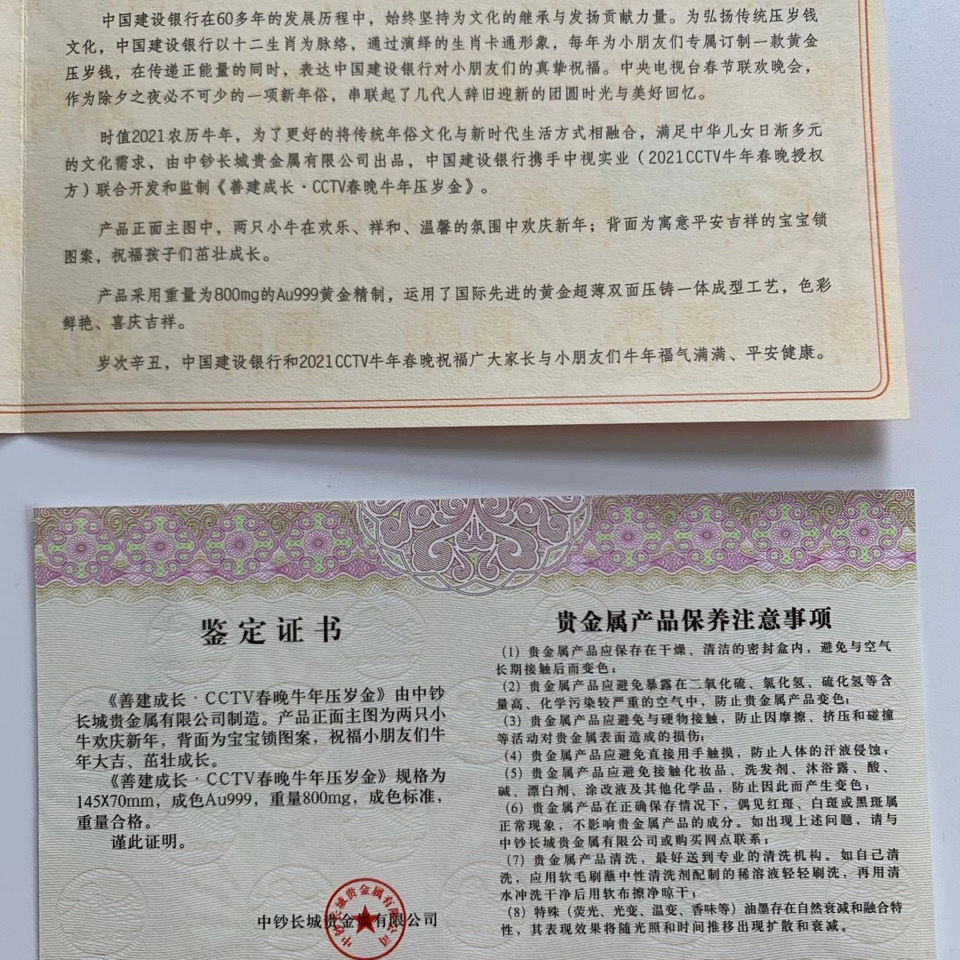 中国建设银行在60多年的发展历程中，始终坚持为文化的继承与发扬贡献力量。为弘扬传统压岁钱
文化，中国建设银行以十二生肖为脉络，通过演绎的生肖卡通形象，每年为小朋友们专属订制一款黄金
压岁钱，在传递正能量的同时，表达中国建设银行对小朋友们的真挚祝福。中央电视台春节联欢晚会，
作为除夕之夜必不可少的一项新年俗，串联起了几代人辞旧迎新的团圆时光与美好回忆。
时值2021农历牛年，为了更好的将传统年俗文化与新时代生活方式相融合，满足中华儿女日渐多元
的文化需求，由中钞长城贵金属有限公司出品，中国建设银行携手中视实业（2021CCTV牛年春晚授权
方）联合开发和监制《善建成长·CCTV春晚牛年压岁金》。
产品正面主图中，两只小牛在欢乐、祥和、温馨的氛围中欢庆新年；背面为寓意平安吉祥的宝宝锁
图案，祝福孩子们茁壮成长。
产品采用重量为800mg的Au999黄金精制，运用了国际先进的黄金超薄双面压铸一体成型工艺，色彩
鲜艳、喜庆吉祥。
岁次辛丑，中国建设银行和2021CCTV牛年春晚祝福广大家长与小朋友们牛年福气满满、平安健康。
鉴定证书
《善建成长·CCTV春晚牛年压岁金》由中钞
长城贵金属有限公司制造。产品正面主图为两只小
牛欢庆新年，背面为宝宝锁图案，祝福小朋友们牛
年大吉、茁壮成长。
《善建成长·CCTV春晚牛年压岁金》规格为
145X70mm，成色Au999，重量800mg，成色标准，
重量合格。
谨此证明。
中钞长城贵金属有限公司
中钞长城贵金属有限公司
贵金属产品保养注意事项
(1) 贵金属产品应保存在干燥、清洁的密封盒内，避免与空气
长期接触后而变色；
(2) 贵金属产品应避免暴露在二氧化硫、氯化氢、硫化氢等含
量高、化学污染较严重的空气中，防止贵金属产品变色；
(3) 贵金属产品应避免与硬物接触，防止因摩擦、挤压和碰撞
等活动对贵金属表面造成的损伤；
(4) 贵金属产品应避免直接用手触摸，防止人体的汗液侵蚀；
(5) 贵金属产品应避免接触化妆品、洗发剂、沐浴露、酸、
碱、漂白剂、涂改液及其他化学品，防止因此而产生变色；
(6) 贵金属产品在正确保存情况下，偶见红斑、白斑或黑斑属
正常现象，不影响贵金属产品的成分。如出现上述问题，请与
中钞长城贵金属有限公司或购买网点联系；
(7) 贵金属产品清洗，最好送到专业的清洗机构。如自己清
洗，应用软毛刷蘸中性清洗剂配制的稀溶液轻轻刷洗，再用清
水冲洗干净后用软布擦净晾干；
(8) 特殊（荧光、光变、温变、香味等）油墨存在自然衰减和融合特
性，其表现效果将随光照和时间推移出现扩散和衰减。